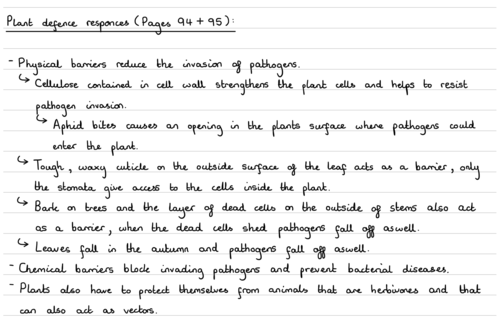 Plant defence responces (Pages 94 + 95):
- Physical barriers reduce the invasion of pathogens.
↳ Cellulose contained in cell wall strengthens the plant cells and helps to resist
pathogen invasion.
↳ Aphid bites causes an opening in the plants surface where pathogens could
enter the plant.
↳ Tough, waxy cuticle on the outside surface of the leaf acts as a barrier, only
the stomata give access to the cells inside the plant.
↳ Bark on trees and the layer of dead cells on the outside of stems also act
as a barrier, when the dead cells shed pathogens fall off aswell.
↳ Leaves fall in the autumn and pathogens fall off aswell.
- Chemical barriers block invading pathogens and prevent bacterial diseases.
- Plants also have to protect themselves from animals that are herbivores and that
can also act as vectors.